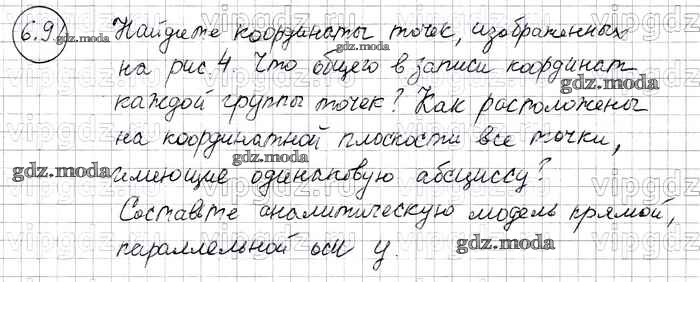 6.9. Найдите координаты точек, изображенных
на рис. 4. Что общего в записи координат
каждой группы точек? Как расположены
на координатной плоскости все точки,
имеющие одинаковую абсциссу?
Составьте аналитическую модель прямой,
параллельной оси y.
gdz.moda
gdz.moda
gdz.moda
gdz.moda
gdz.moda
gdz.moda
gdz.moda